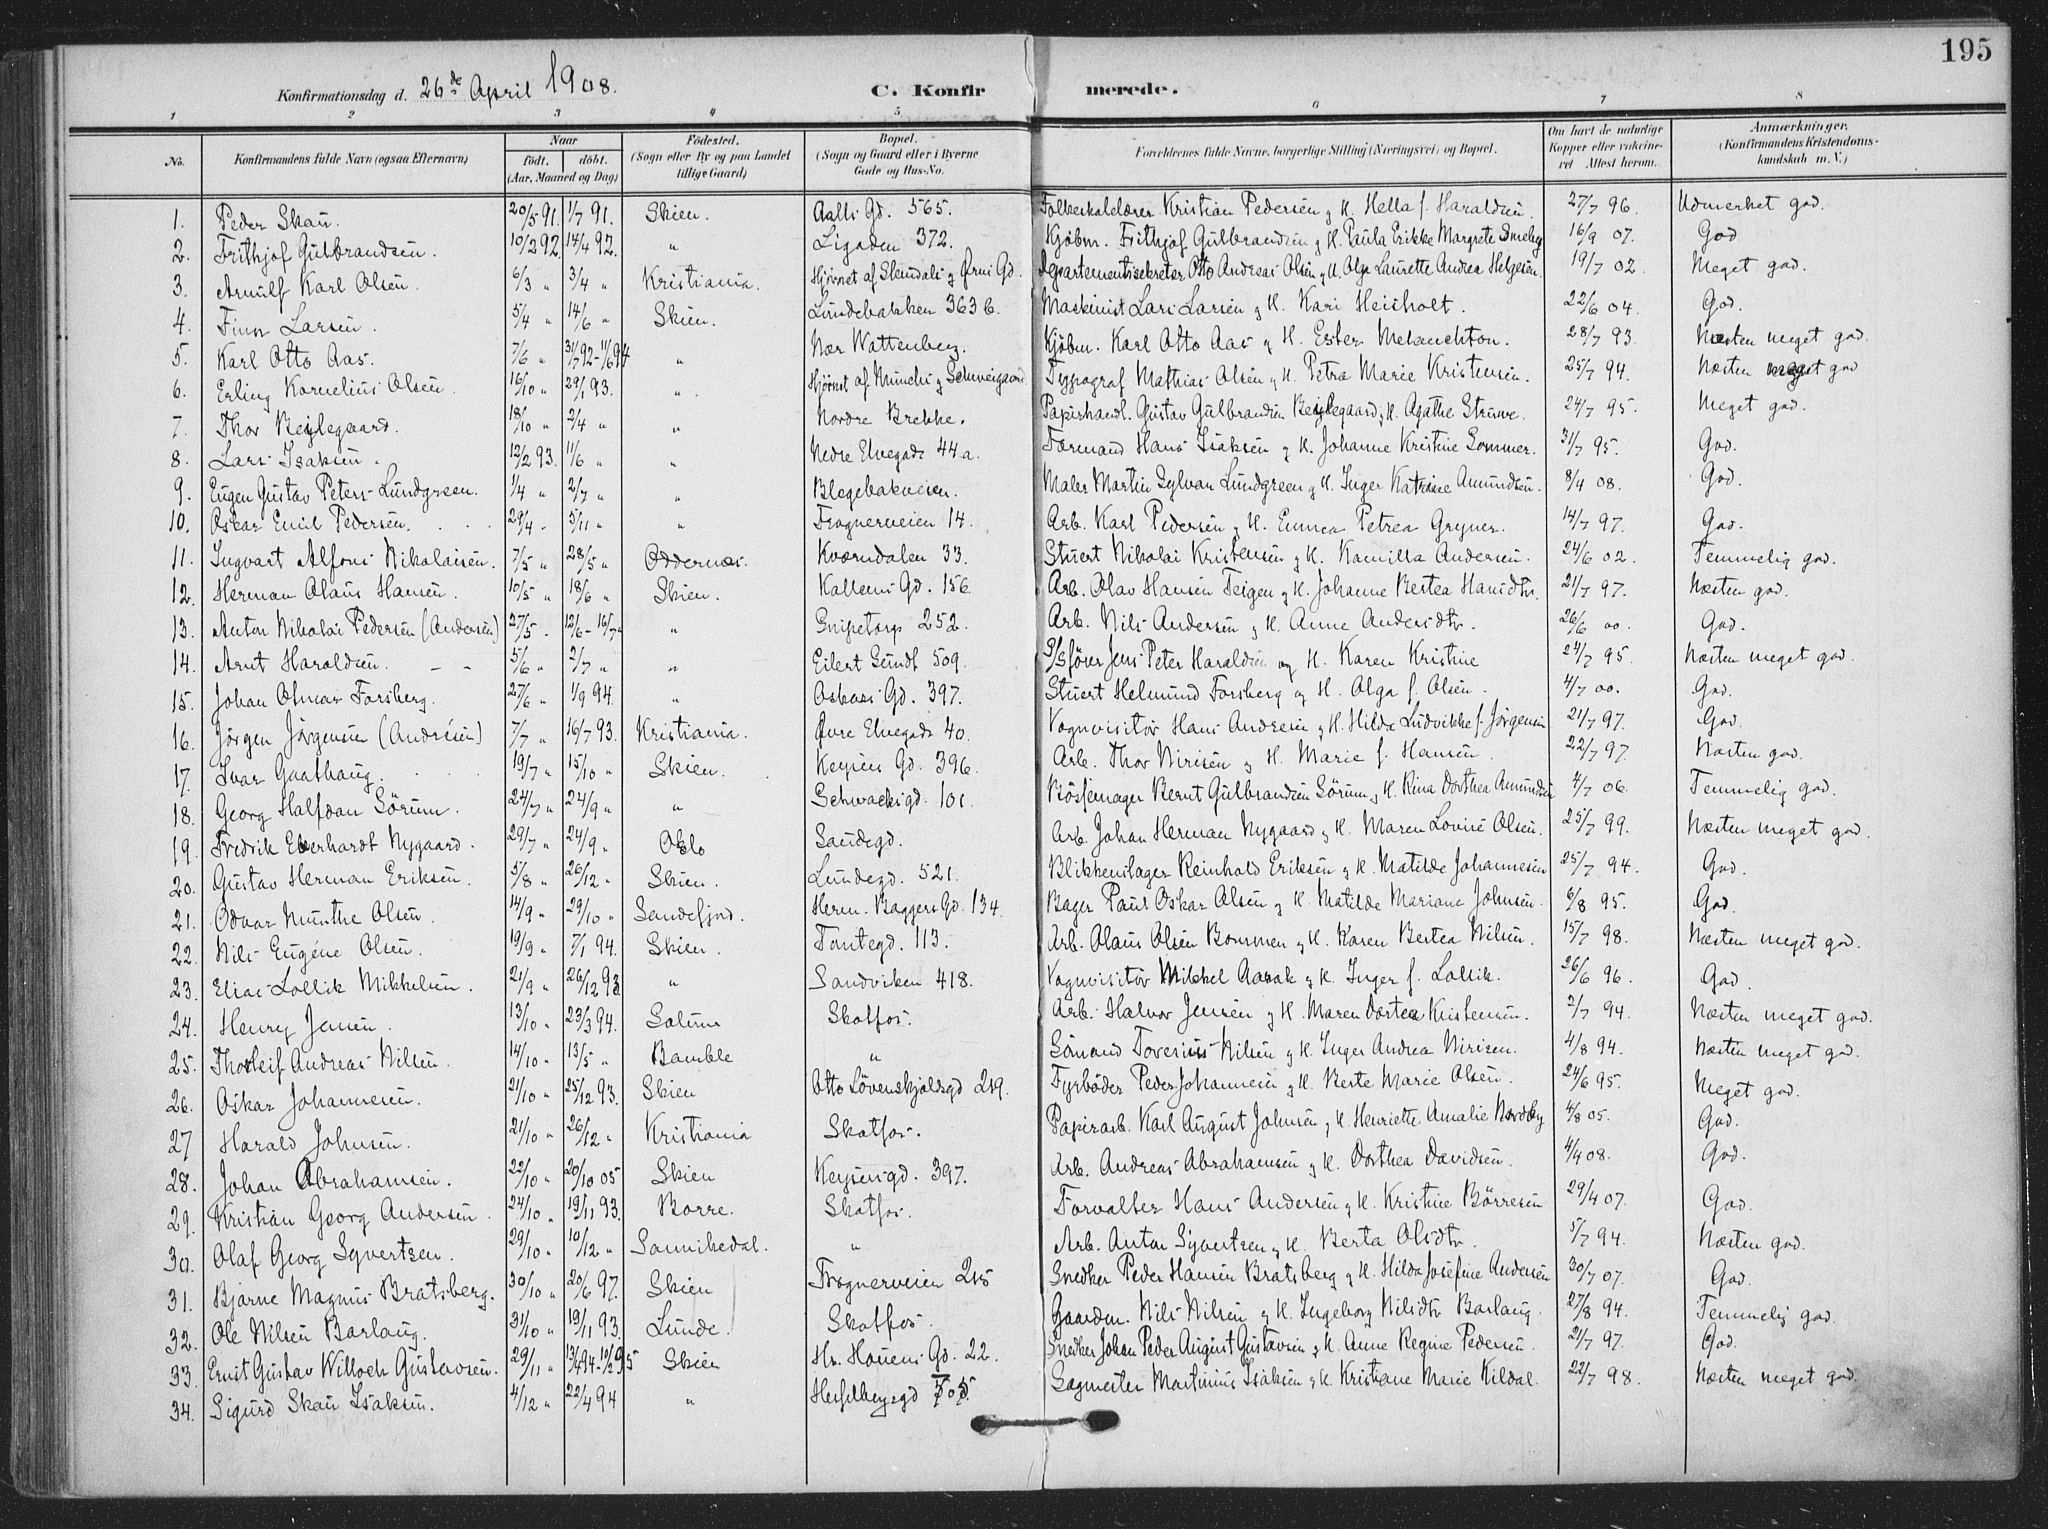 195
Konfirmationsdag d. 26de April 1908. C. Konfirmerede.
1 2 3 4 5 6 7 8
No. Konfirmandens fulde Navn (ogsaa Efternavn) Naar födt. döbt. (Aar, Maaned og Dag) Födested. (Sogn eller By og paa Landet tillige Gaard) Bopæl. (Sogn og Gaard eller i Byerne Gade og Hus-No. Forældrenes fulde Navne, borgerlige Stilling (Næringsvei) og Bopæl. Om havt de naturlige Kopper eller vakcineret Attest herom. Anmærkninger. (Konfirmandens Kristendomskundskab m. V.)
1. Peder Skau. 20/5 91. 1/7 91. Skien. Aalls Gd. 565. Folkeskolelærer Kristian Pedersen og H. Hella f. Haraldsen. 27/7 96. Udmerket god.
2. Frithjof Gulbrandsen. 10/2 92. 14/4 92. " Ligaden 372. Kjøbm. Frithjof Gulbrandsen og H. Paula Erikke Margrete Smeby 16/9 07. God
3. Arnulf Karl Olsen. 6/3 " 3/4 " Kristiania. Hjörnet af Stendals og Örns Gd. Departementssekretær Otto Andreas Olsen og H. Olga Laurette Andrea Helgesen. 19/7 02. Meget god.
4. Finn Larsen. 5/4 " 14/6 " Skien. Lundebakken 363 b. Maskinist Lars Larsen og H. Kari Heisholt. 22/6 04. God.
5. Karl Otto Aas. 7/6 " 31/7 92 - 11/6 94 " Nær Wattenberg. Kjöbm. Karl Otto Aas og H. Ester Melanchton. 28/7 93. Næsten meget god.
6. Erling Kornelius Olsen. 16/10 " 29/1 93. " Hjörnet af Munchs og Schweigaard Typograf Mathias Olsen og H. Petra Marie Kristensen. 25/7 94. Næsten meget god
7. Thor Beylegaard. 18/10 " 2/4 " " Nordre Brekke. Papirhandl. Gustav Gulbrandsen Beylegaard og H. Agathe Struwe. 24/7 95. Meget god.
8. Lars Isaksen. 12/2 93. 11/6 " " Nedre Elvegade 44 a. Formand Hans Isaksen og H. Johanne Kristine Sommer. 31/7 95. God.
9. Eugen Gustav Peters-Lundgreen. 1/4 " 2/7 " " Blegebakveien. Maler Martin Sylvan Lundgreen og H. Inger Katrine Amundsen. 8/4 08. God.
10. Oskar Emil Pedersen. 29/4 " 5/11 " " Frognerveien 14. Arb. Karl Pedersen og H. Emma Petrea Gryner. 14/7 97. God.
11. Ingvart Alfons Nikolaisen. 7/5 " 28/5 " Oddernæs. Kværndalen 33. Stuert Nikolai Kristensen og H. Kamilla Andersen. 24/6 02. Temmelig god.
12. Herman Olaus Hansen. 10/5 " 18/6 " Skien. Kallems Gd. 156. Arb. Olav Hansen Teigen og H. Johanne Bertea Hansdtr. 21/7 97. Næsten god.
13. Anton Nikolai Pedersen (Andersen) 27/5 " 12/6 - 16/7 " " Snipetorp 252. Arb. Nils Andersen og H. Anne Andersdtr. 26/6 00. God.
14. Arnt Haraldsen. 5/6 " 2/7 " " Eilert Sundt 509. S/Sförer Jens Peter Haraldsen og H. Karen Kristine 24/7 95. Næsten meget god.
15. Johan Olmar Forsberg. 27/6 " 1/9 94. " Oskars Gd. 397. Stuert Helmund Forsberg og H. Olga f. Olsen. 4/7 00. God.
16. Jörgen Jörgensen (Andresen) 7/7 " 16/7 93. Kristiania. Övre Elvegade 40. Vognvisitör Hans Andresen og H. Hilda Ludvikke f. Jörgensen 21/7 97. God
17. Ivar Gaathaug. 19/7 " 15/10 " Skien. Keysers Gd. 396. Arb. Thor Nirisen og H. Marie f. Hansen. 22/7 97. Næsten god.
18. Georg Halfdan Sörum. 24/7 " 24/9 " " Schwachsgd. 101. Bössemager Bernt Gulbrandsen Sörum og H. Rina Dorthea Amundsen 4/7 06. Temmelig god.
19. Fredrik Eberhardt Nygaard. 29/7 " 24/9 " Oslo Sandegd. Arb. Johan Herman Nygaard og H. Maren Lovise Olsen. 25/7 99. Næsten meget god.
20. Gustav Herman Eriksen. 5/8 " 26/12 " Skien. Lundegd. 521. Blikkenslager Reinhold Eriksen og H. Matilde Johannesen 25/7 94. God.
21. Odvar Munthe Olsen. 14/9 " 29/10 " Sandefjord. Herm. Baggers Gd. 134. Bager Paul Oskar Olsen og H. Matilde Mariane Johnsen. 6/8 95. God.
22. Nils Eugéne Olsen. 19/9 " 7/1 94. Skien. Tontegd. 113. Arb. Olaus Olsen Bommen og H. Karen Bertea Nilsen. 15/7 98. Næsten meget god.
23. Elias Lollik Mikkelsen. 21/9 " 26/12 93. " Sandviken 418. Vognvisitör Mikkel Aarak og H. Inger f. Lollik. 26/6 96. God.
24. Henry Jensen. 13/10 " 23/3 94. Solum Skotfos. Arb. Halvor Jensen og H. Maren Dortea Kristensen. 2/7 94. Næsten meget god.
25. Thorleif Andreas Nilsen. 14/10 " 13/5 " Bamble " Sömand Tovesius Nilsen og H. Inger Andrea Nirisen. 4/8 94. Næsten meget god.
26. Oskar Johannesen. 21/10 " 25/12 93. Skien Otto Lövenskjoldsgd 219. Fyrböder Peder Johannesen og H. Berte Marie Olsen. 24/6 95. Meget god.
27 Harald Johnsen. 21/10 " 26/12 " Kristiania Skotfos. Papirarb. Karl August Johnsen og H. Henriette Amalie Nordby 4/8 05. God.
28. Johan Abrahamsen. 22/10 " 20/10 05 Skien Keysersgd. 397. Arb. Andreas Abrahamsen og H. Dorthea Davidsen. 4/4 08. God.
29. Kristian Georg Andersen. 24/10 " 19/11 93. Borre. Skotfos. Forvalter Hans Andersen og H. Kristine Börresen 29/4 07. God.
30. Olaf Georg Syvertsen. 29/10 " 10/12 " Sannikedal. " Arb. Anton Syvertsen og H. Berta Olsdtr. 5/7 94. Næsten god.
31. Bjarne Magnus Bratsberg. 30/10 " 20/6 97. Skien Frognerveien 215 Snedker Peder Hansen Bratsberg og H. Hilda Josefine Andersen 30/7 07. God.
32. Ole Nilsen Barlaug. 31/10 " 19/11 93. Lunde. Skotfos. Gaardm. Nils Nilsen og H. Ingeborg Nilsdtr Barlaug. 27/8 94. Temmelig god.
33. Ernst Gustav Willoch Gustavsen. 29/11 " 13/4 94 - 10/2 95 Skien Hr. Houens Gd. 22. Snedker Johan Peder August Gustavsen og H. Anne Regine Pedersen. 21/7 97. God.
34. Sigurd Skau Isaksen. 4/12 " 22/4 94 " Hesselbergsgd 505. Sagmester Martinius Isaksen og H. Kristiane Marie Kildal. 22/7 98. Næsten meget god.